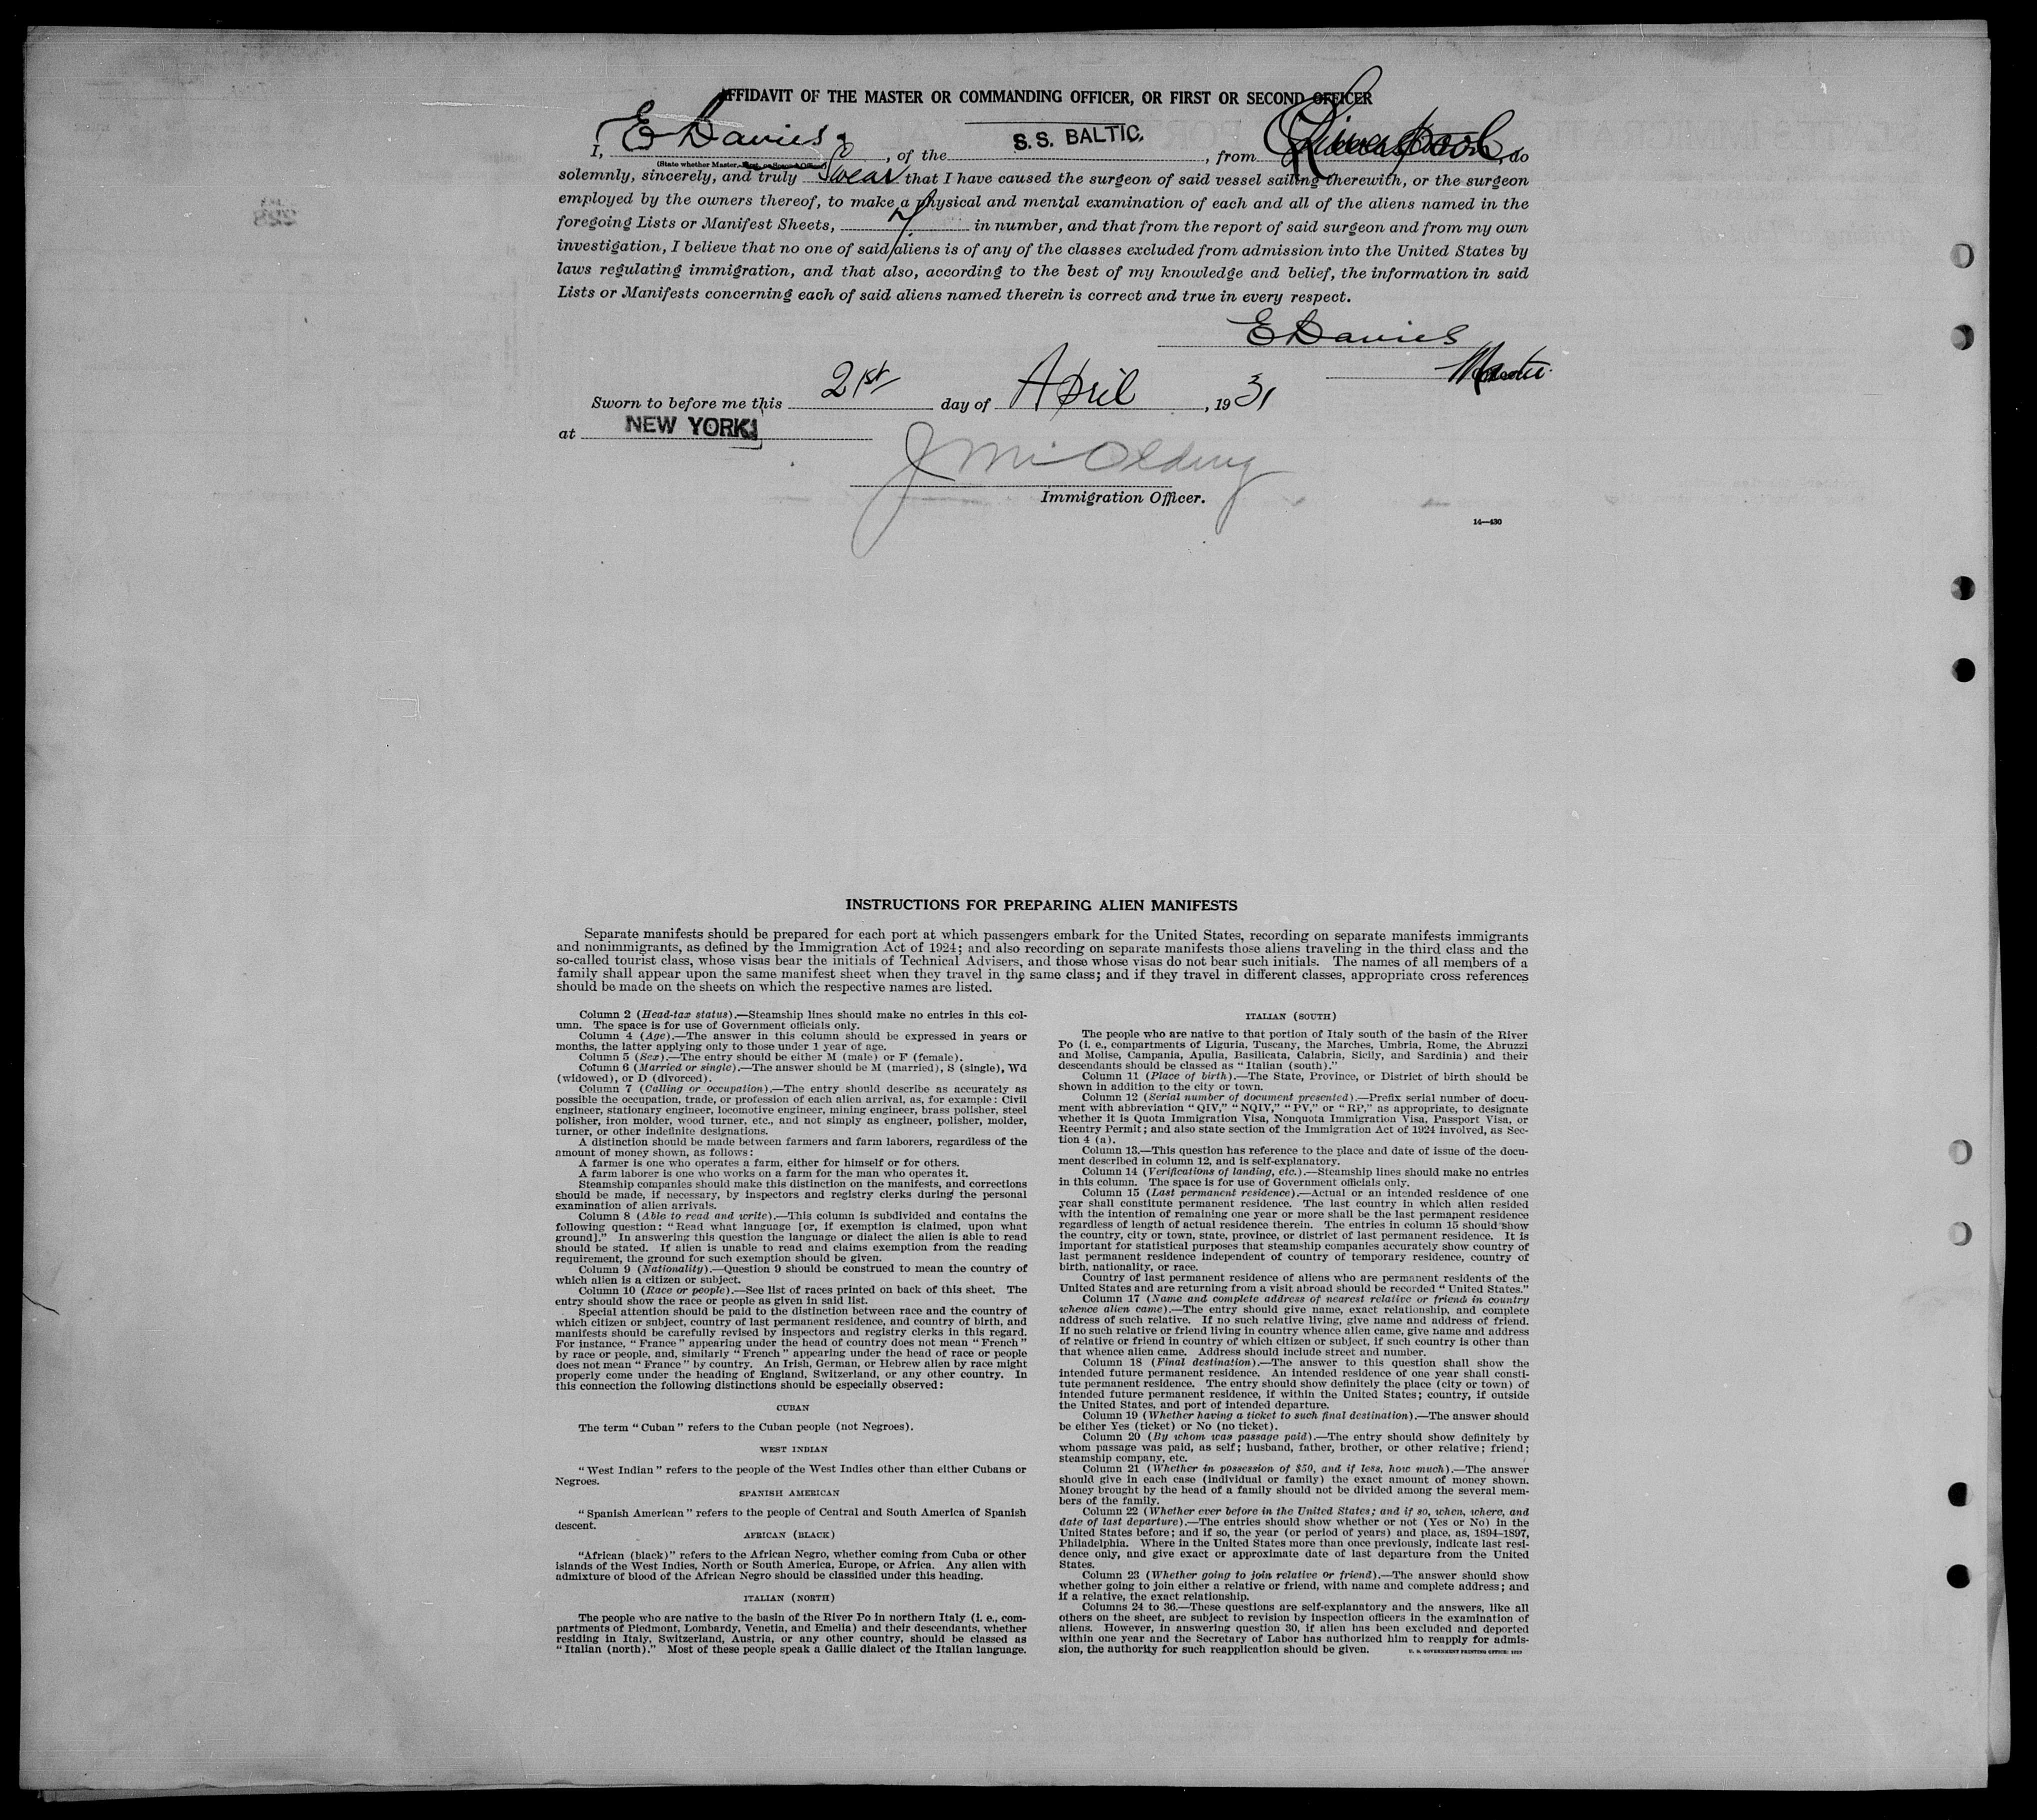 AFFIDAVIT OF THE MASTER OR COMMANDING OFFICER, OR FIRST OR SECOND OFFICER
I, E Davies, of the S.S. BALTIC., from Liverpool, do
(State whether Master, First, or Second Officer)
solemnly, sincerely, and truly swear that I have caused the surgeon of said vessel sailing therewith, or the surgeon
employed by the owners thereof, to make a physical and mental examination of each and all of the aliens named in the
foregoing Lists or Manifest Sheets, in number, and that from the report of said surgeon and from my own
investigation, I believe that no one of said aliens is of any of the classes excluded from admission into the United States by
laws regulating immigration, and that also, according to the best of my knowledge and belief, the information in said
Lists or Manifests concerning each of said aliens named therein is correct and true in every respect.
E Davies
Master
Sworn to before me this 21st day of April, 1931
at NEW YORK
Immigration Officer.
14—430
INSTRUCTIONS FOR PREPARING ALIEN MANIFESTS
Separate manifests should be prepared for each port at which passengers embark for the United States, recording on separate manifests immigrants
and nonimmigrants, as defined by the Immigration Act of 1924; and also recording on separate manifests those aliens traveling in the third class and the
so-called tourist class, whose visas bear the initials of Technical Advisers, and those whose visas do not bear such initials. The names of all members of a
family shall appear upon the same manifest sheet when they travel in the same class; and if they travel in different classes, appropriate cross references
should be made on the sheets on which the respective names are listed.
Column 2 (Head-tax status).—Steamship lines should make no entries in this col-
umn. The space is for use of Government officials only.
Column 4 (Age).—The answer in this column should be expressed in years or
months, the latter applying only to those under 1 year of age.
Column 5 (Sex).—The entry should be either M (male) or F (female).
Column 6 (Married or single).—The answer should be M (married), S (single), Wd
(widowed), or D (divorced).
Column 7 (Calling or occupation).—The entry should describe as accurately as
possible the occupation, trade, or profession of each alien arrival, as, for example: Civil
engineer, stationary engineer, locomotive engineer, mining engineer, brass polisher, steel
polisher, iron molder, wood turner, etc., and not simply as engineer, polisher, molder,
turner, or other indefinite designations.
A distinction should be made between farmers and farm laborers, regardless of the
amount of money shown, as follows:
A farmer is one who operates a farm, either for himself or for others.
A farm laborer is one who works on a farm for the man who operates it.
Steamship companies should make this distinction on the manifests, and corrections
should be made, if necessary, by inspectors and registry clerks during the personal
examination of alien arrivals.
Column 8 (Able to read and write).—This column is subdivided and contains the
following question: "Read what language [or, if exemption is claimed, upon what
ground]." In answering this question the language or dialect the alien is able to read
should be stated. If alien is unable to read and claims exemption from the reading
requirement, the ground for such exemption should be given.
Column 9 (Nationality).—Question 9 should be construed to mean the country of
which alien is a citizen or subject.
Column 10 (Race or people).—See list of races printed on back of this sheet. The
entry should show the race or people as given in said list.
Special attention should be paid to the distinction between race and the country of
which citizen or subject, country of last permanent residence, and country of birth, and
manifests should be carefully revised by inspectors and registry clerks in this regard.
For instance, "France" appearing under the head of country does not mean "French"
by race or people, and, similarly "French" appearing under the head of race or people
does not mean "France" by country. An Irish, German, or Hebrew alien by race might
properly come under the heading of England, Switzerland, or any other country. In
this connection the following distinctions should be especially observed:
CUBAN
The term "Cuban" refers to the Cuban people (not Negroes).
WEST INDIAN
"West Indian" refers to the people of the West Indies other than either Cubans or
Negroes.
SPANISH AMERICAN
"Spanish American" refers to the people of Central and South America of Spanish
descent.
AFRICAN (BLACK)
"African (black)" refers to the African Negro, whether coming from Cuba or other
islands of the West Indies, North or South America, Europe, or Africa. Any alien with
admixture of blood of the African Negro should be classified under this heading.
ITALIAN (NORTH)
The people who are native to the basin of the River Po in northern Italy (i. e., com-
partments of Piedmont, Lombardy, Venetia, and Emelia) and their descendants, whether
residing in Italy, Switzerland, Austria, or any other country, should be classed as
"Italian (north)." Most of these people speak a Gallic dialect of the Italian language.
ITALIAN (SOUTH)
The people who are native to that portion of Italy south of the basin of the River
Po (i. e., compartments of Liguria, Tuscany, the Marches, Umbria, Rome, the Abruzzi
and Molise, Campania, Apulia, Basilicata, Calabria, Sicily, and Sardinia) and their
descendants should be classed as "Italian (south)."
Column 11 (Place of birth).—The State, Province, or District of birth should be
shown in addition to the city or town.
Column 12 (Serial number of document presented).—Prefix serial number of docu-
ment with abbreviation "QIV," "NQIV," "PV," or "RP," as appropriate, to designate
whether it is Quota Immigration Visa, Nonquota Immigration Visa, Passport Visa, or
Reentry Permit; and also state section of the Immigration Act of 1924 involved, as Sec-
tion 4 (a).
Column 13.—This question has reference to the place and date of issue of the docu-
ment described in column 12, and is self-explanatory.
Column 14 (Verifications of landing, etc.).—Steamship lines should make no entries
in this column. The space is for use of Government officials only.
Column 15 (Last permanent residence).—Actual or an intended residence of one
year shall constitute permanent residence. The last country in which alien resided
with the intention of remaining one year or more shall be the last permanent residence
regardless of length of actual residence therein. The entries in column 15 should show
the country, city or town, state, province, or district of last permanent residence. It is
important for statistical purposes that steamship companies accurately show country of
last permanent residence independent of country of temporary residence, country of
birth, nationality, or race.
Country of last permanent residence of aliens who are permanent residents of the
United States and are returning from a visit abroad should be recorded "United States."
Column 17 (Name and complete address of nearest relative or friend in country
whence alien came).—The entry should give name, exact relationship, and complete
address of such relative. If no such relative living, give name and address of friend.
If no such relative or friend living in country whence alien came, give name and address
of relative or friend in country of which citizen or subject, if such country is other than
that whence alien came. Address should include street and number.
Column 18 (Final destination).—The answer to this question shall show the
intended future permanent residence. An intended residence of one year shall consti-
tute permanent residence. The entry should show definitely the place (city or town) of
intended future permanent residence, if within the United States; country, if outside
the United States, and port of intended departure.
Column 19 (Whether having a ticket to such final destination).—The answer should
be either Yes (ticket) or No (no ticket).
Column 20 (By whom was passage paid).—The entry should show definitely by
whom passage was paid, as self; husband, father, brother, or other relative; friend;
steamship company, etc.
Column 21 (Whether in possession of $50, and if less, how much).—The answer
should give in each case (individual or family) the exact amount of money shown.
Money brought by the head of a family should not be divided among the several mem-
bers of the family.
Column 22 (Whether ever before in the United States; and if so, when, where, and
date of last departure).—The entries should show whether or not (Yes or No) in the
United States before; and if so, the year (or period of years) and place, as, 1894-1897,
Philadelphia. Where in the United States more than once previously, indicate last resi-
dence only, and give exact or approximate date of last departure from the United
States.
Column 23 (Whether going to join relative or friend).—The answer should show
whether going to join either a relative or friend, with name and complete address; and
if a relative, the exact relationship.
Columns 24 to 36.—These questions are self-explanatory and the answers, like all
others on the sheet, are subject to revision by inspection officers in the examination of
aliens. However, in answering question 30, if alien has been excluded and deported
within one year and the Secretary of Labor has authorized him to reapply for admis-
sion, the authority for such reapplication should be given.
U. S. GOVERNMENT PRINTING OFFICE: 1929